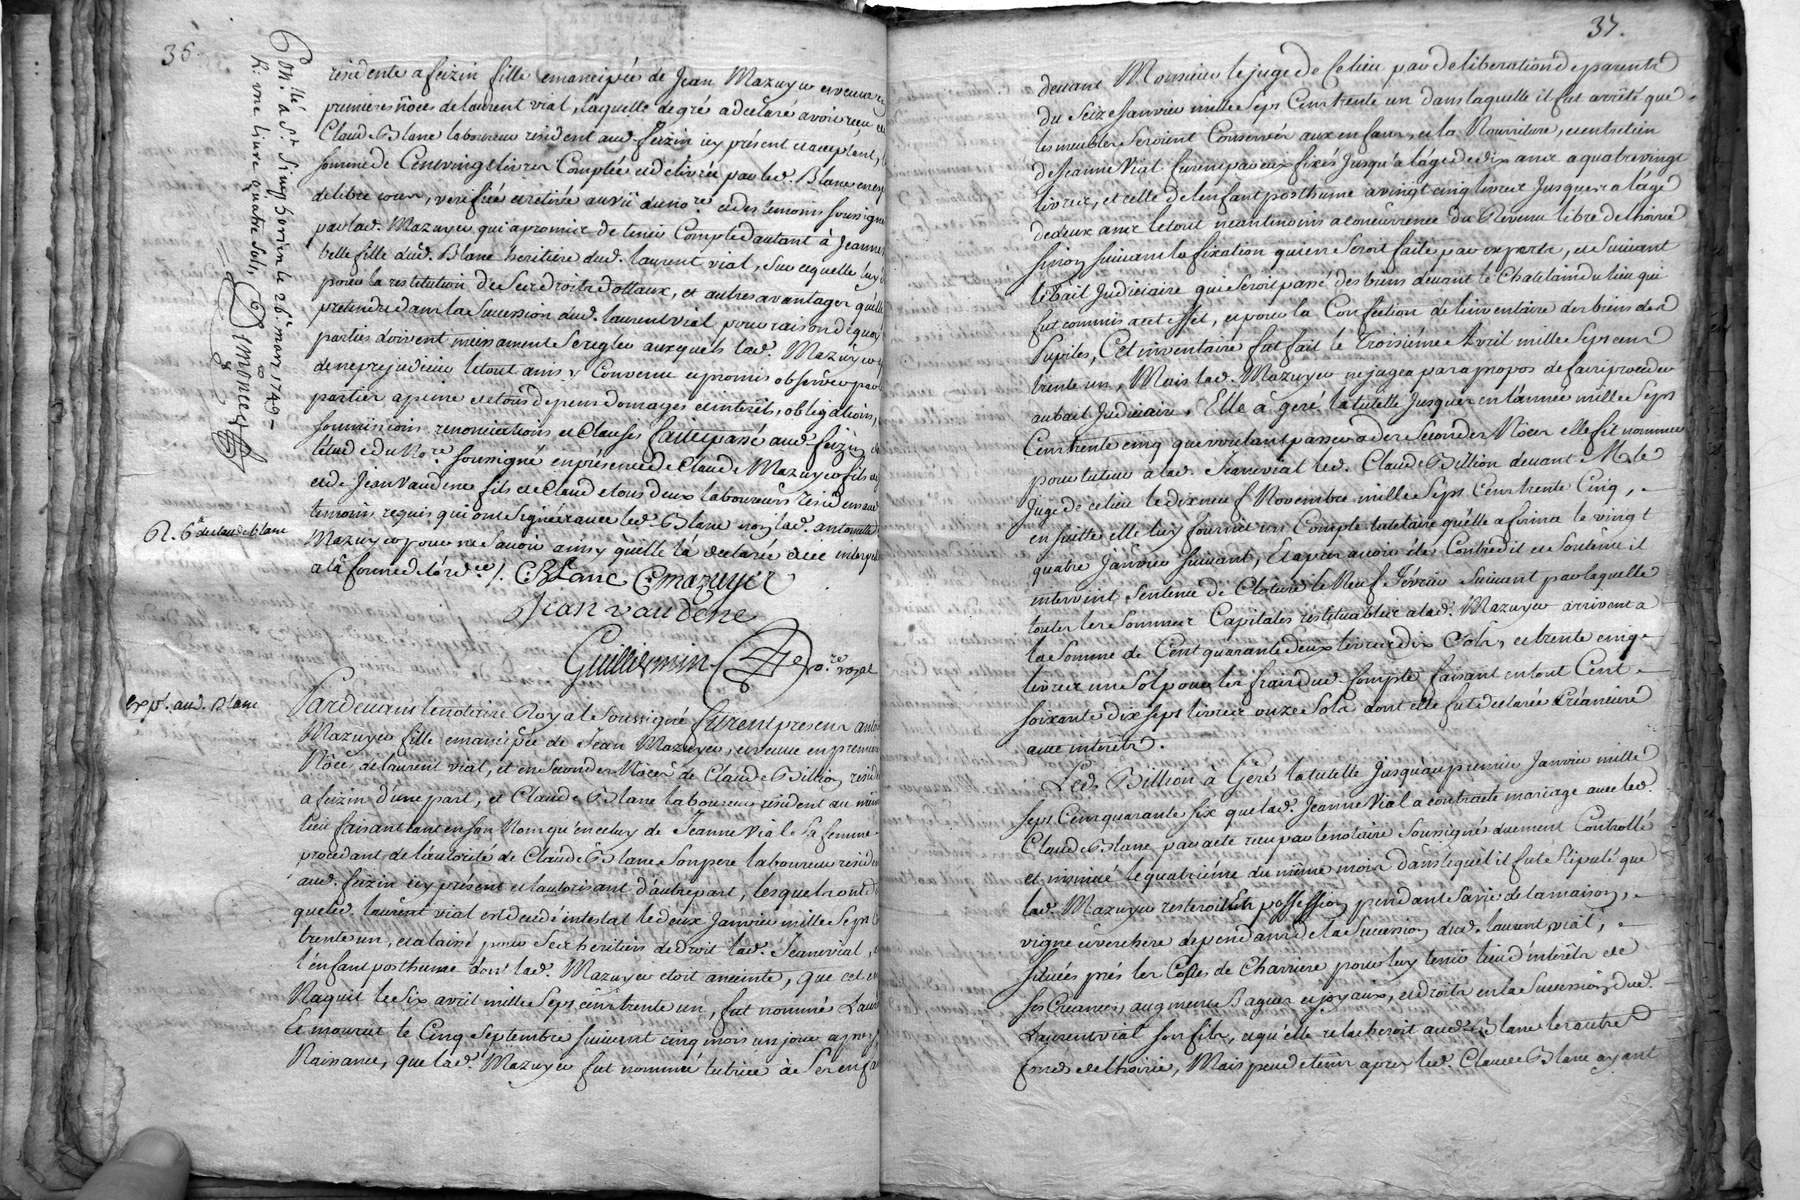 36.
Con.llé à St Simp.prien le 26e mars 1749 -
R. une livre quatre sols,
Simonet
residente a feizin fille emancipée de Jean Mazuyer et veuve en
premieres nôces de laurent vial, laquelle de gré a declaré avoir reçu de
Claude Blanc laboureur resident aud. feizin icy présent et acceptant, la
somme de Cent vingt livres Comptée et delivrée par led. Blanc en esp
de libre cours, verifiée et retirée au vû du no.re et des temoins soussignés
par lad. Mazuyer qui a promis de tenir Compte d'autant à Jeanne
belle fille dud. Blanc heritiere dud. laurent vial, sur ce quelle luy d
pour la restitution de ses droits dottaux, et autres avantages qu'elle
pretendre dans la succession dud. laurent vial pour raison de quoy
parties doivent incessament se regler auxquels lad. Mazuyer
de ne prejudicier le tout ainsy Convenu et promis observer par
parties a peine de tous depens domages et interêts, obligations,
soumissions renonciations et Clauses fait et passé aud. feizin en
l'étude du No.re soussigné en présence de Claude Mazuyer fils
et de Jean Vaudene fils de Claude tous deux laboureurs residents aud
temoins requis qui ont signé avec led. Blanc non lad. antoinette
Mazuyer pour ne savoir ainsy quelle l'a declaré de ce interpellée
a la forme de l'ord.ce /.
R. 6 de claude blanc
C. Blanc C. mazuyer
Jean vaudene
Guillermin no.re royal
exp.d. aud. Blanc
Pardevant le notaire Royal soussigné furent presens antoi
Mazuyer fille emancipée de Jean Mazuyer, et veuve en premiere
Nôce de laurent vial, et en secondes Nôces de Claude Billion, reside
a feizin d'une part, et Claude Blanc laboureur resident au même
lieu faisant tant en son Nom qu'en celuy de Jeanne Vial sa femme
procedant de l'autorité de Claude Blanc son pere laboureur resident
aud. feizin icy présent et l'autorisant d'autre part, lesquels ont d
que led. laurent vial est decedé intestat le deux Janvier mille Sept C
trente un, et a laissé pour ses heritiers de droit lad. Jeanne vial, e
l'enfant posthume dont lad. Mazuyer étoit enceinte, que cet en
Naquit le six avril mille Sept cent trente un, fut nommé Laure
Et mourut le Cinq Septembre suivant cinq mois un jour apres
Naissance, que lad. Mazuyer fut nommée tutrice de ses enfa
37.
devant Monsieur le juge de Ce lieu par deliberation de parents
du seize Janvier mille Sept Cent trente un dans laquelle il fut arrêté que
les meubles seroient Conservés aux enfans, et la Nourriture, et entretein
de Jeanne Vial furent par eux fixés Jusqu'a l'âge de dix ans a quatre vingt
livres, et celle de l'enfant posthume a vingt cinq livres Jusques a l'âge
de deux ans le tout neantmoins a concurrence du Revenu libre de l'hoirie
sinon suivant la fixation qui en seroit faite par experts, et suivant
le bail Judiciaire qui seroit passé des biens devant le Chatelain du lieu qui
fut commis a cet effet, et pour la Confection de l'inventaire des biens des
Pupiles, Cet inventaire fut fait le Troisième Avril mille Sept cent
trente un, Mais lad. Mazuyer ne jugea pas a propos de faire proceder
au bail Judiciaire. Elle à geré la tutelle Jusques en l'année mille Sept
Cent trente cinq que voulant passer a des secondes Nôces elle fit nommer
pour tuteur a lad. Jeanne vial led. Claude Billion devant M. le
Juge de ce lieu le dix neuf Novembre mille Sept Cent trente Cinq,
ensuitte elle luy fournit un Compte tutelaire qu'elle afirma le vingt
quatre Janvier suivant, Et apres avoir été Contredit et soutenu il
intervint sentence de Cloture le Neuf fevrier suivant par laquelle
toutes les sommes Capitales restituables a lad. Mazuyer arrivent a
la somme de Cent quarante deux livres dix sols, et trente cinq
livres un sol pour les frais dud. Compte faisant en tout Cent
soixante dix sept livres onze sols dont elle fut declarée Créanciere
avec interêts.
Led. Billion à Geré la tutelle Jusqu'au premier Janvier mille
sept Cent quarante six que lad. Jeanne Vial a contracté mariage avec led.
Claude Blanc par acte reçu par le notaire soussigné duement Controllé
et insinué le quatrième du même mois dans lequel il fut stipulé que
lad. Mazuyer resteroit en possession pendant sa vie de la maison,
vigne et verchere dependants de la succession dud. laurent vial,
situées prés les Côtes de Charriere pour luy tenir lieu d'interêts de
ses Creances, augment Bagues et joyaux, et droits en la succession dud.
Laurent vial son fils, et qu'elle relacheroit aud. Blanc les autres
fonds de l'hoirie, Mais peu de tems apres led. Claude Blanc ayant